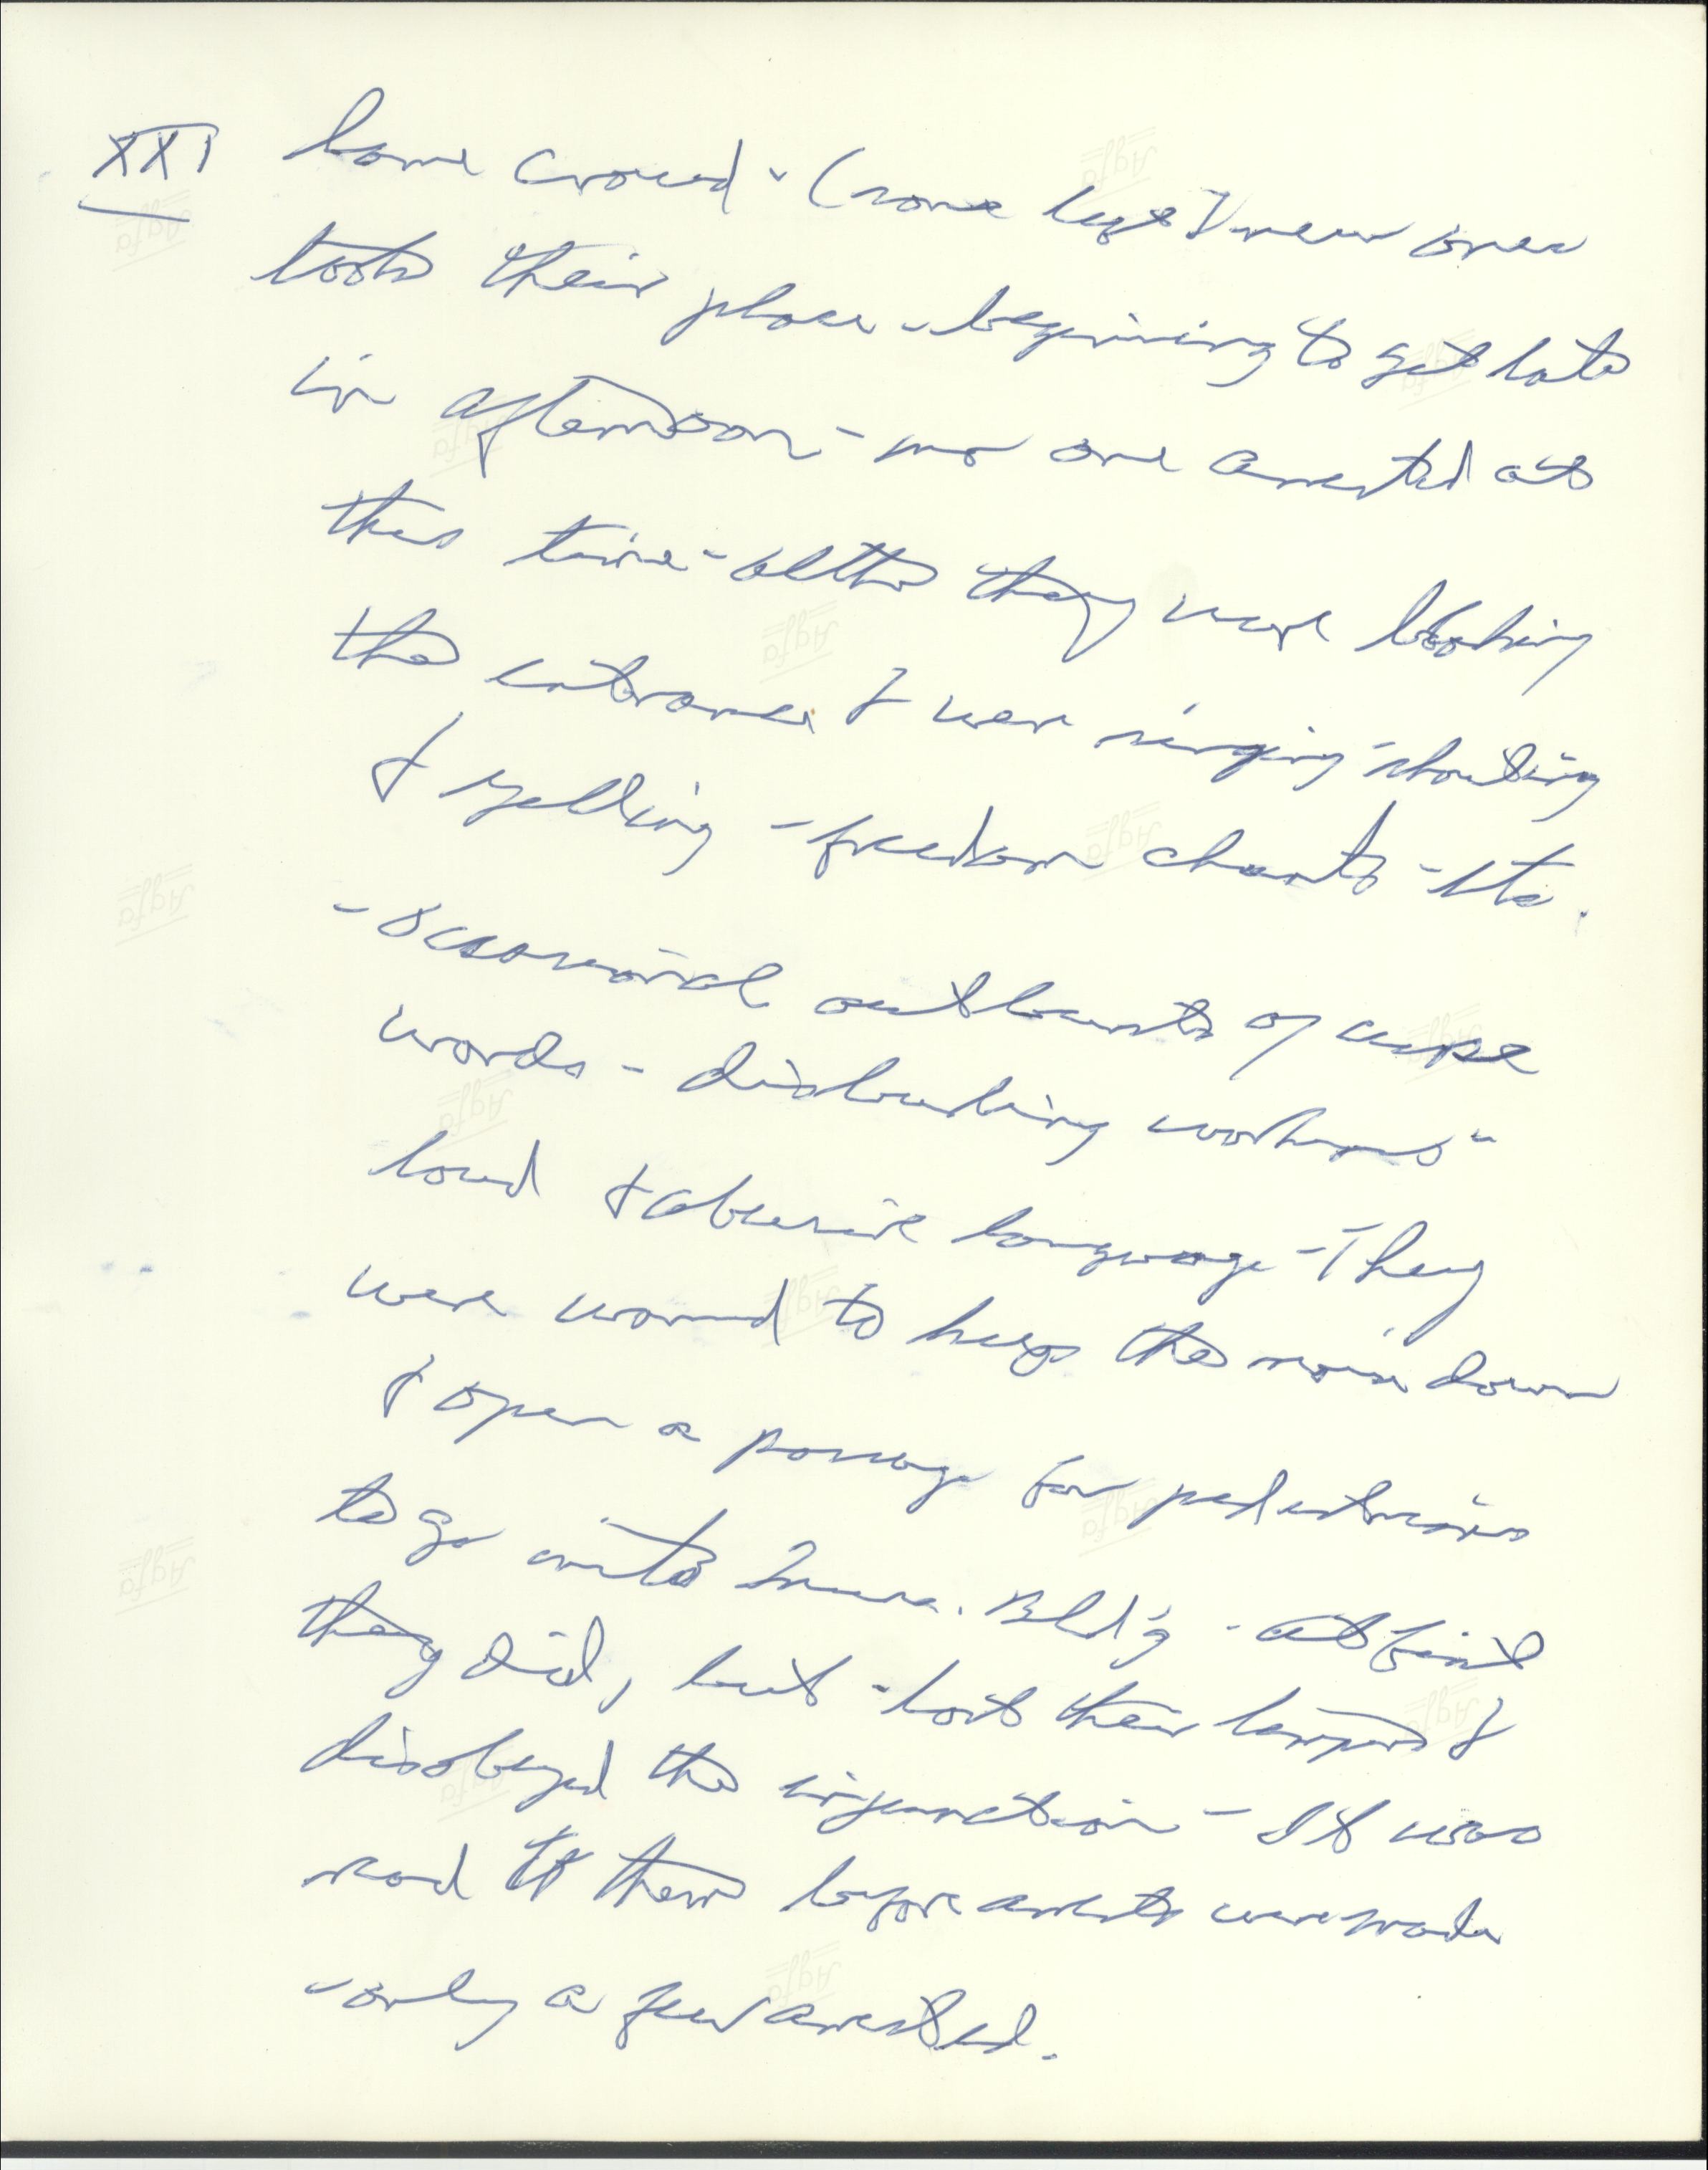 XXI same crowd - (some left) new ones
took their place - beginning to get late
in afternoon - no one arrested at
this time - altho they were blocking
the entrance & were singing - shouting
& yelling - freedom chants - etc.
- occasional outbursts of curse
words - disturbing workers -
loud & abusive language - They
were warned to keep the noise down
& open a passage for pedestrians
to go into Insura. Bld'g - at first
they did, but - lost their tempers &
disobeyed the injunction - It was
read to them before arrests were made
- only a few arrested.
Agfa